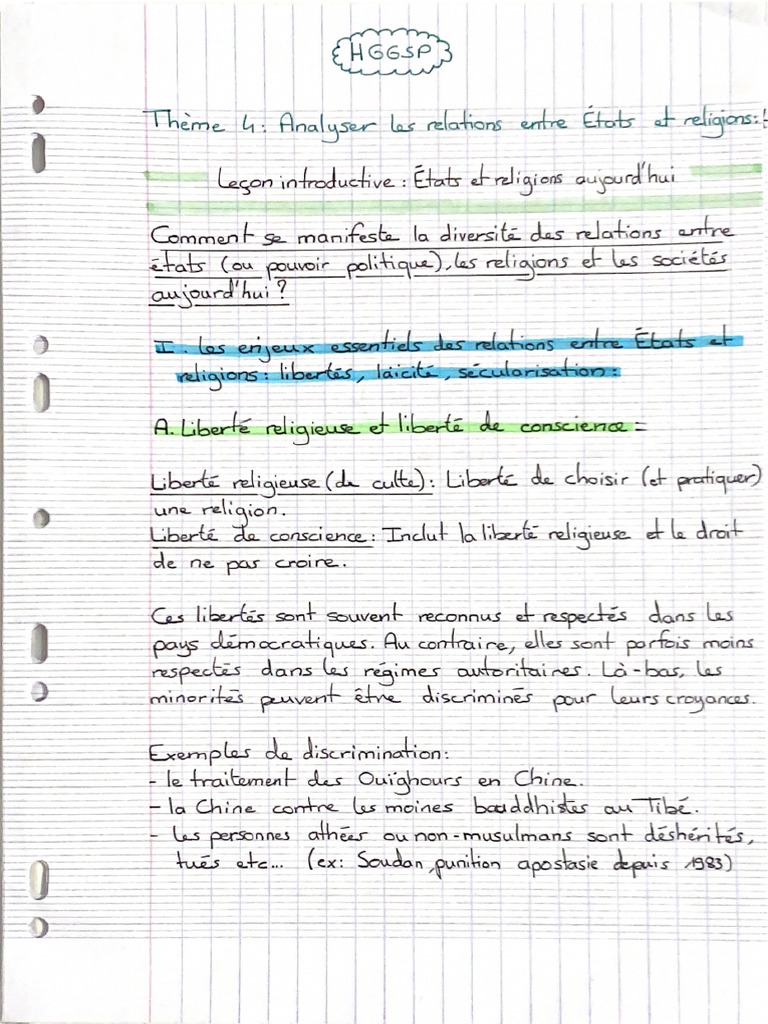 HGGSP
Thème 4: Analyser les relations entre États et religions:
Leçon introductive : États et religions aujourd'hui
Comment se manifeste la diversité des relations entre
états (ou pouvoir politique), les religions et les sociétés
aujourd'hui ?
I. Les enjeux essentiels des relations entre États et
religions : libertés, laïcité, sécularisation :
A. Liberté religieuse et liberté de conscience :
Liberté religieuse (de culte) : Liberté de choisir (et pratiquer)
une religion.
Liberté de conscience : Inclut la liberté religieuse et le droit
de ne pas croire.
Ces libertés sont souvent reconnus et respectés dans les
pays démocratiques. Au contraire, elles sont parfois moins
respectés dans les régimes autoritaires. Là-bas, les
minorités peuvent être discriminés pour leurs croyances.
Exemples de discrimination :
- le traitement des Ouïghours en Chine.
- la Chine contre les moines bouddhistes au Tibé.
- les personnes athées ou non-musulmans sont déshérités,
tués etc... (ex: Soudan, punition apostasie depuis 1983)